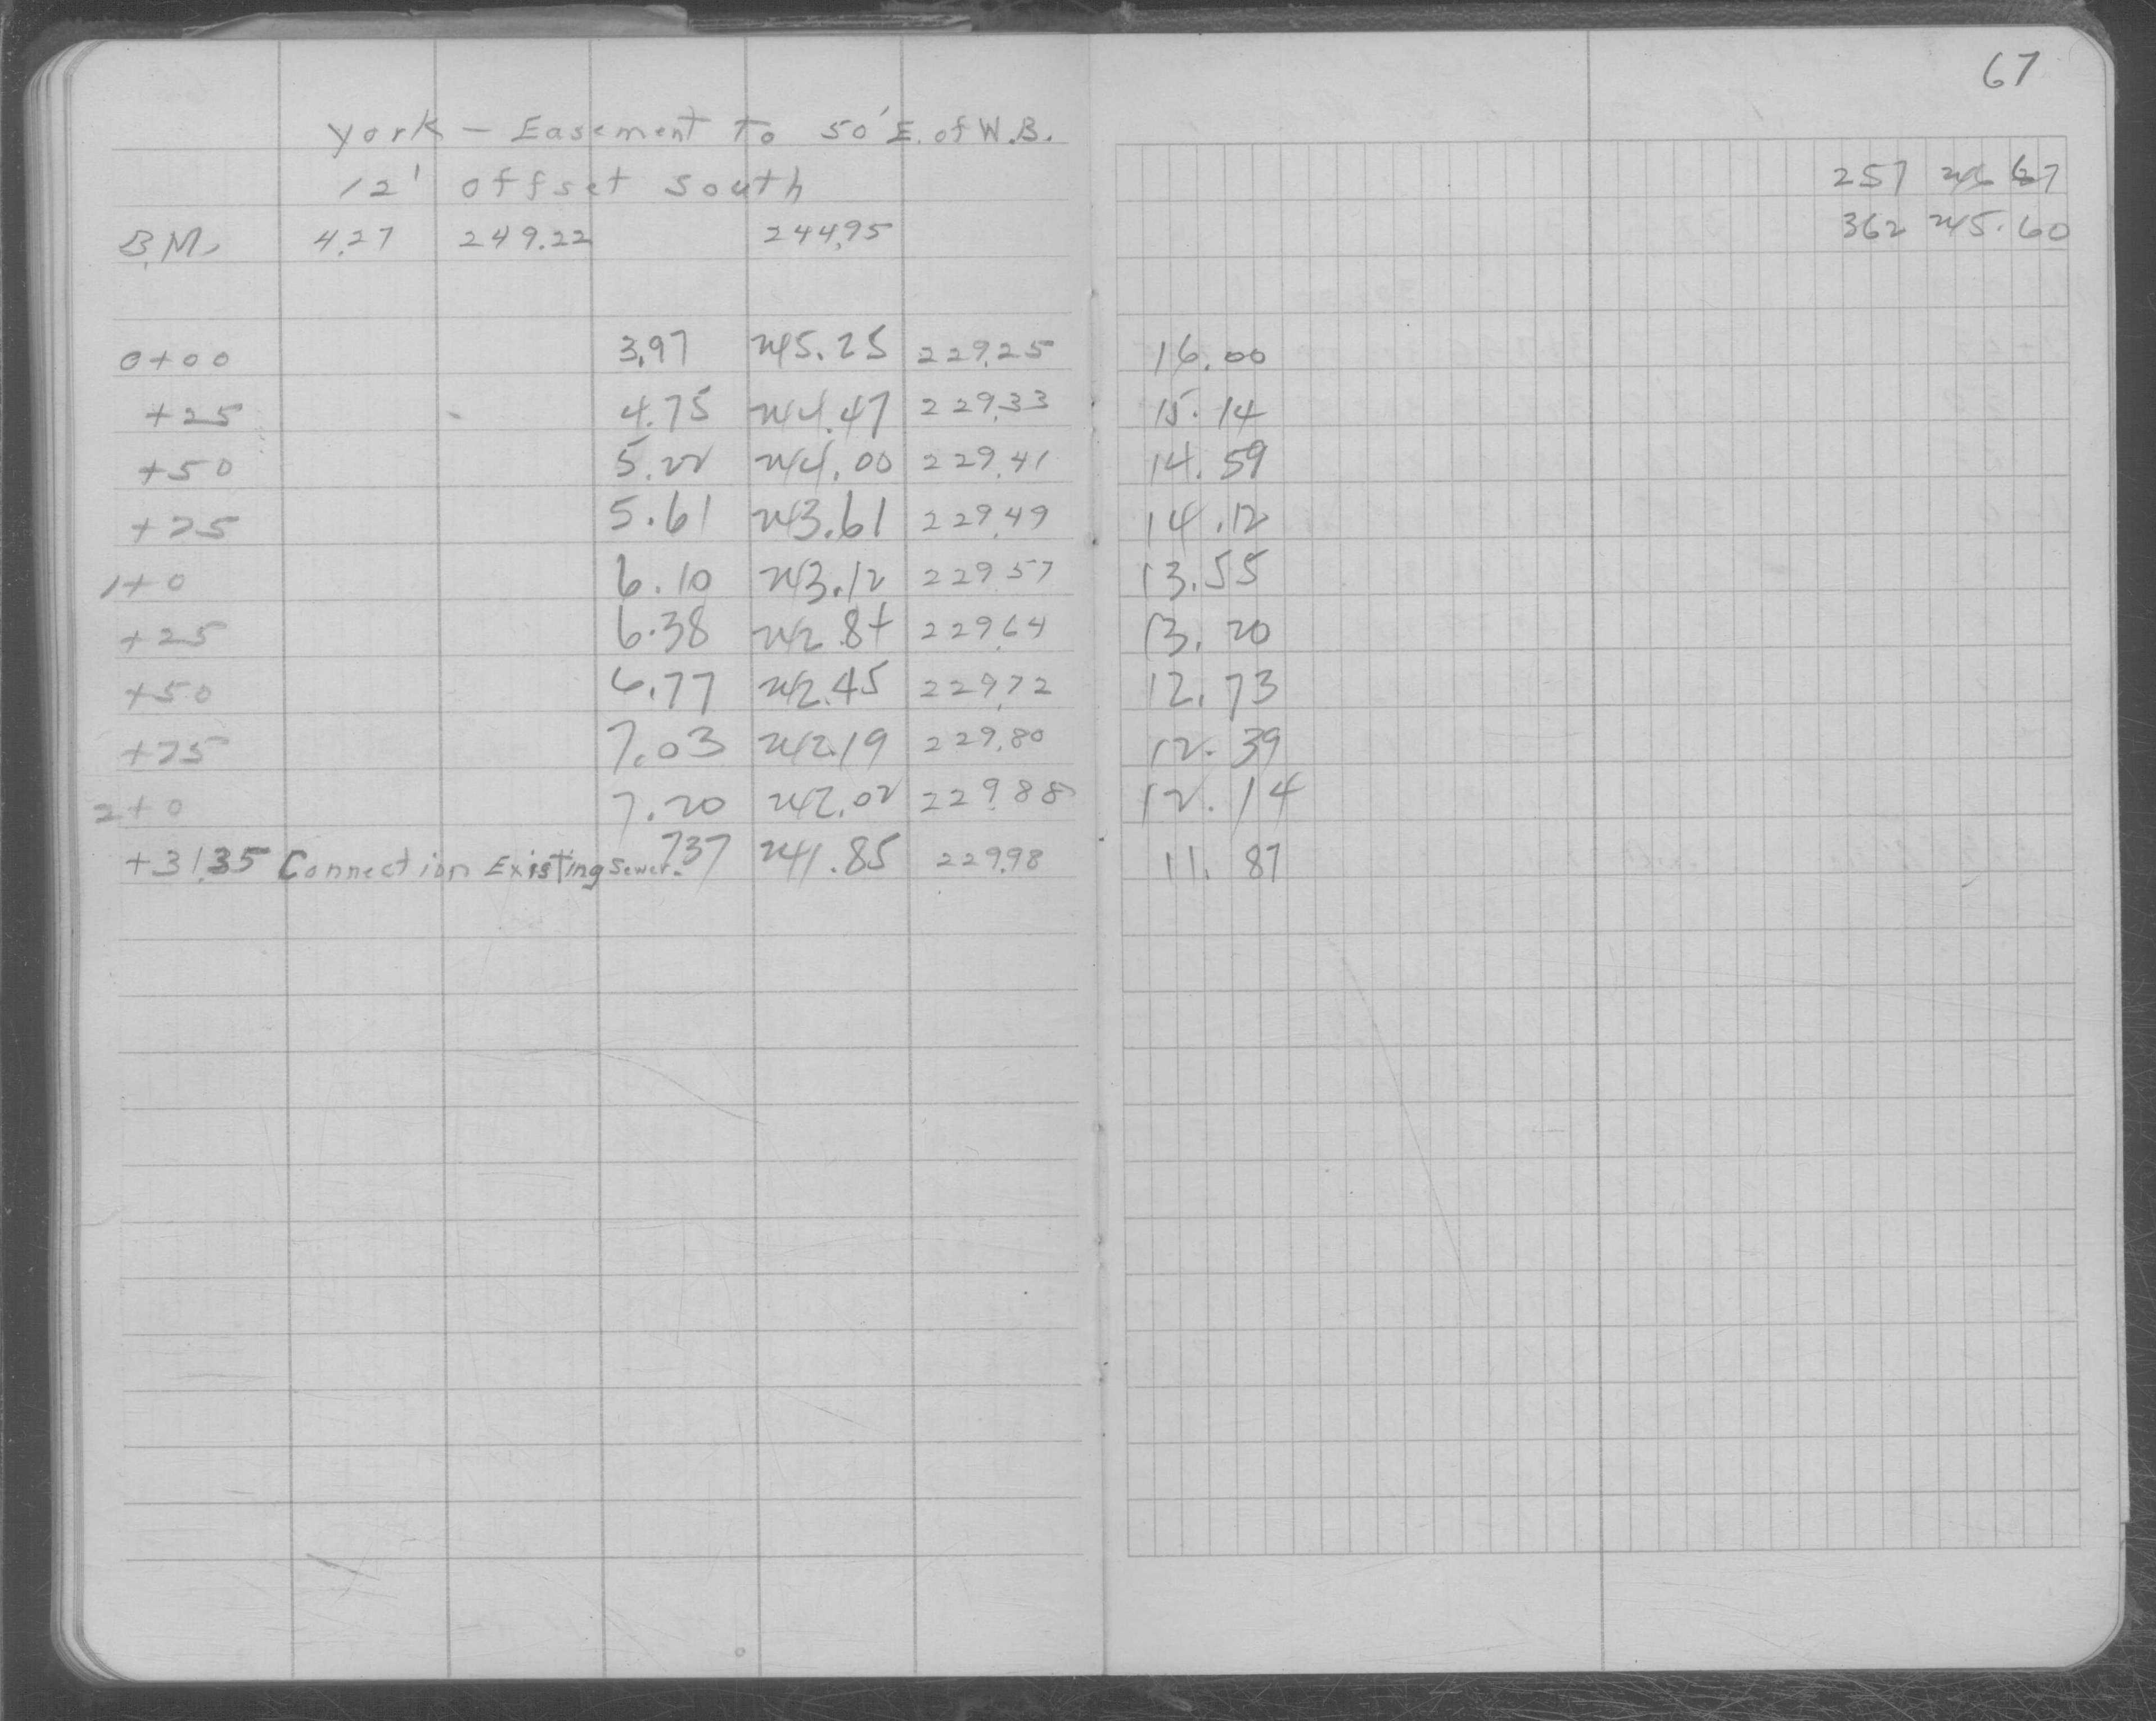 67
York - Easement To 50' E. of W.B.
12' offset South
B.M. 4.27 249.22 244.95
257 246 67
362 245.60
0+00 3.97 245.25 229.25 16.00
+25 4.75 244.47 229.33 15.14
+50 5.22 244.00 229.41 14.59
+75 5.61 243.61 229.49 14.12
1+0 6.10 243.12 229.57 13.55
+25 6.38 242.84 229.64 13.20
+50 6.77 242.45 229.72 12.73
+75 7.03 242.19 229.80 12.39
2+0 7.20 242.02 229.88 12.14
+31.35 Connection Existing Sewer. 737 241.85 229.98 11.87